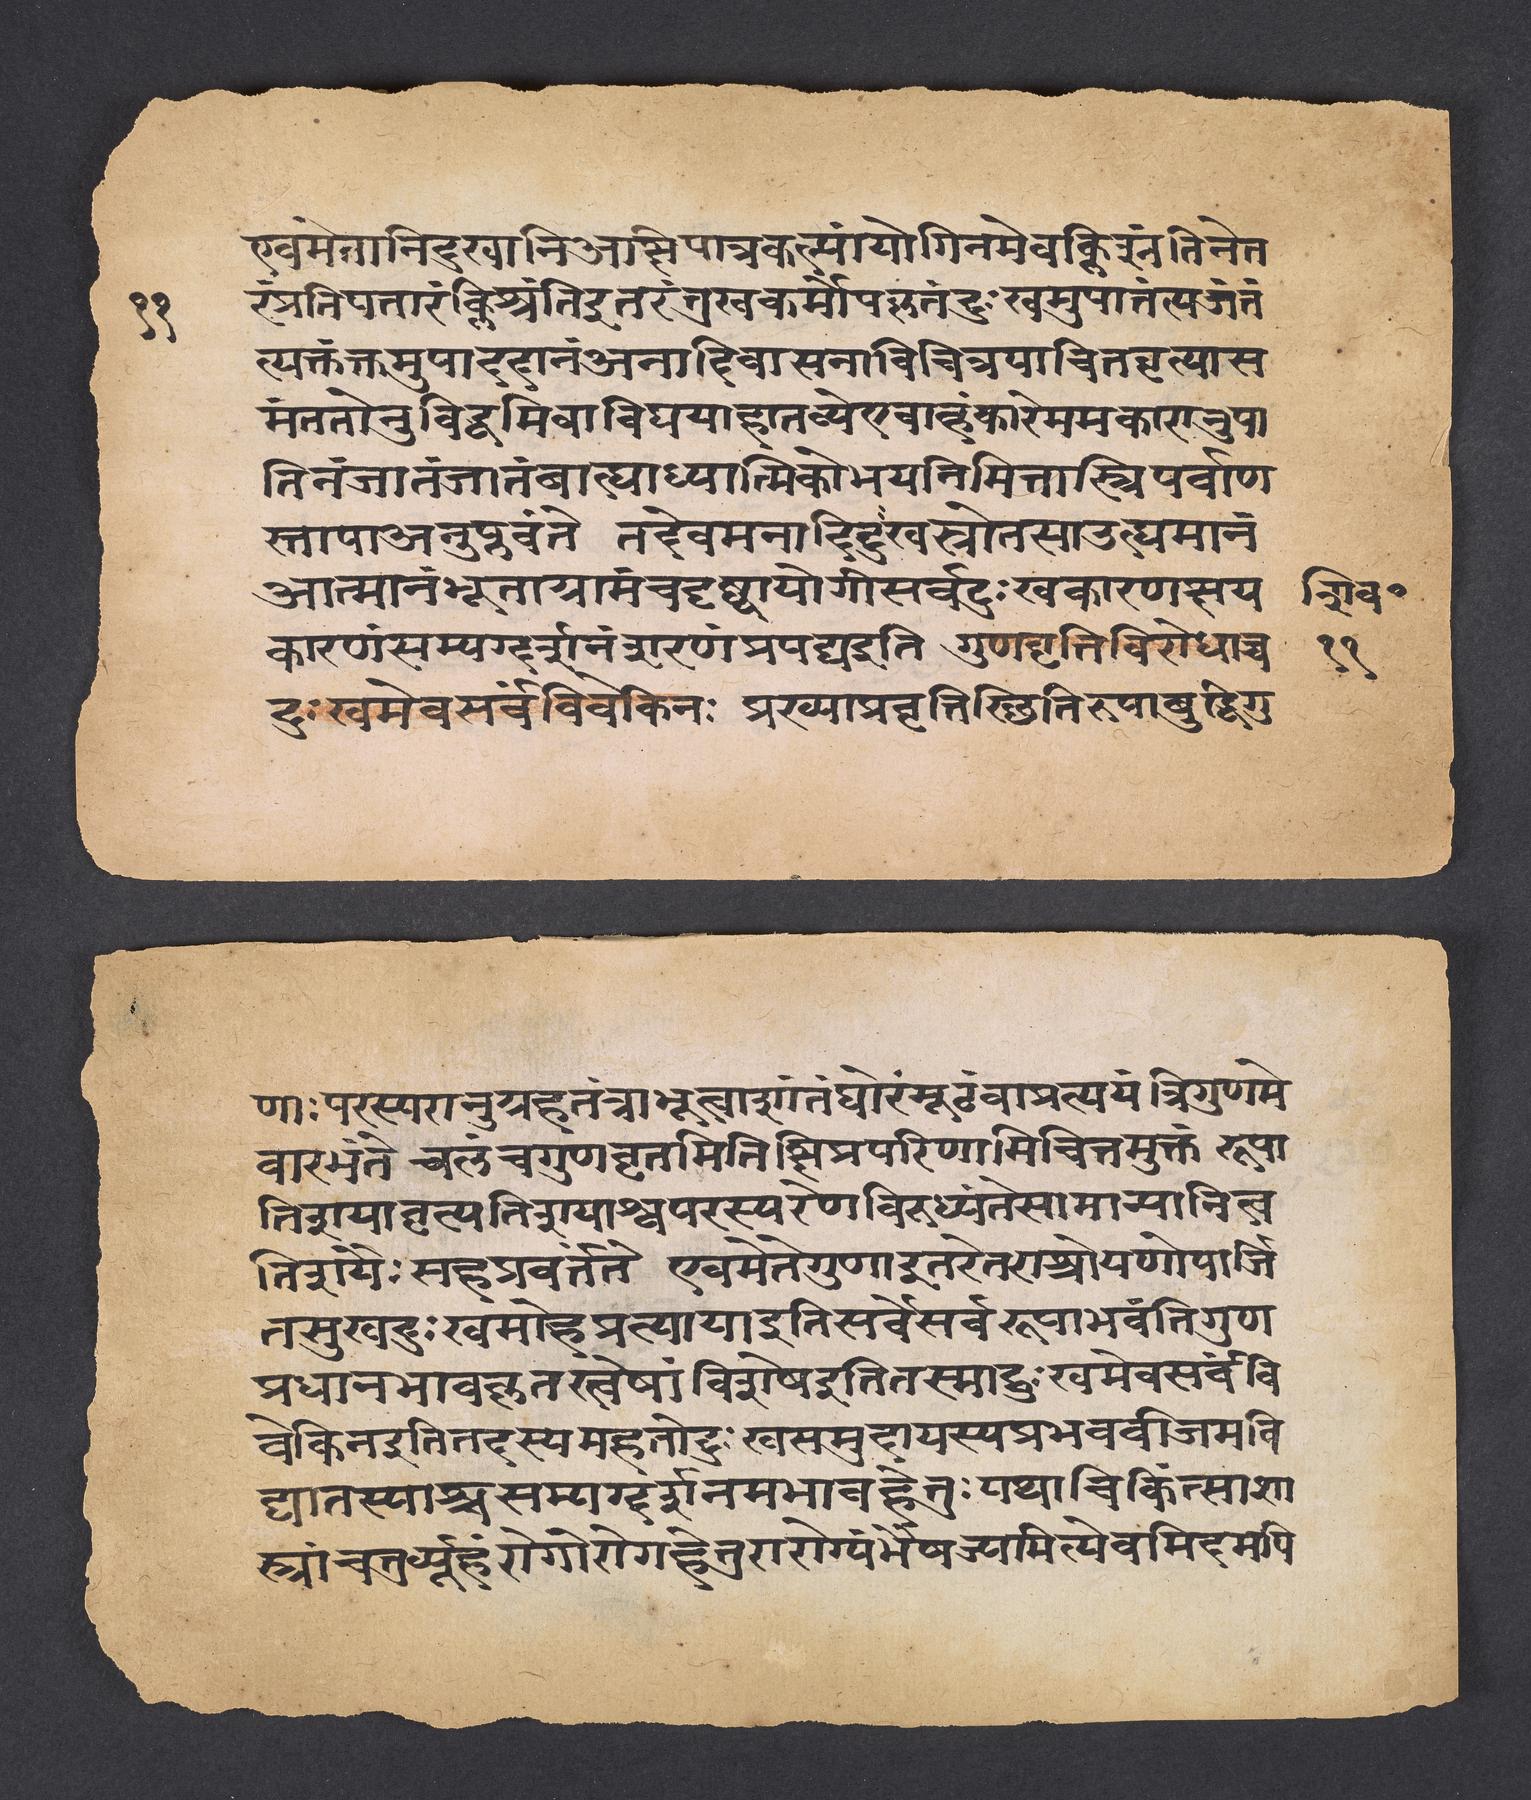 एवंमेतानिदुखानिअक्षिपात्रकल्पांयोगिनमेवक्लिशंतिनेत
११
रंप्रतिपत्तारंक्लिश्यंतिइतरंत्रखकर्मोपहृतंदुःखमुपात्तंत्यजंतं
त्यक्तंक्तमुपाददानंअनादिवासनाविचित्रपाचितवृत्यास
मंततोनुविद्धमिवाविद्ययाहातव्येएवाहंकारेममकारानुपा
तिनंजातंजातंबाह्याध्यात्मिकोभयनिमित्तास्त्रिपर्वाण
स्तापाअनुप्लवंते तदेवमनादिदुःखस्त्रोतसाउह्यमानं
आत्मानंभूताग्रामंचदृष्ट्वायोगीसर्वदुःखकारणक्षय
शिव॰
कारणंसम्यग्दर्शनंशरणंप्रपद्यइति गुणवृत्तिविरोधाच्च
११
दुःखमेवसर्वंविवेकिनः प्रख्याप्रवृत्तिस्थितिरूपाबुद्धिगु
णाः परस्परानुग्रहतंत्राभूत्वाशांतंघोरंमूढंवाप्रत्ययंत्रिगुणमे
वारभंते चलंचगुणवृत्तमितिक्षिप्रपरिणामिचित्तमुक्तं रूपा
तिशयावृत्यतिशयाश्चपरस्परेणविरुध्यंतेसामान्यानित्व
तिशयैः सहप्रवर्त्तंते एवमेतेगुणाइतरेतराश्रयेणोपार्जि
तसुखदुःखमोहप्रत्यायाइतिसर्वेसर्वरूपाभवंतिगुण
प्रधानभावकृतस्त्वेषांविशेषइतितस्माद्दुःखमेवसर्वंवि
वेकिनइतितदस्यमहतोदुःखसमुदायस्यप्रभवबीजमवि
द्यातस्याश्चसम्यग्दर्शनमभावहेतुः यथाचिकित्साशा
स्त्रांचतुर्व्यूहंरोगोरोगहेतुरारोग्यंर्भैषज्यमित्येवमिदमपि